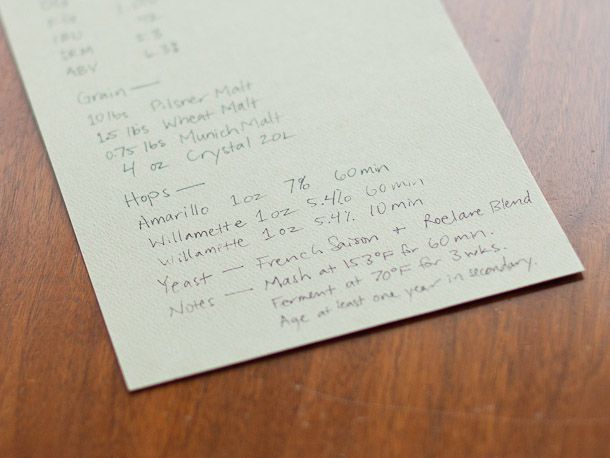 IBU
SRM 5.8
ABV 6.3%
Grain —
10 lbs Pilsner Malt
1.5 lbs Wheat Malt
0.75 lbs Munich Malt
4 oz Crystal 20L
Hops —
Amarillo 1oz 7% 60min
Willamette 1oz 5.4% 60min
Willamette 1oz 5.4% 10min
Yeast — French Saison + Roelare Blend
Notes — Mash at 153°F for 60 min.
Ferment at 70°F for 3 wks.
Age at least one year in secondary.